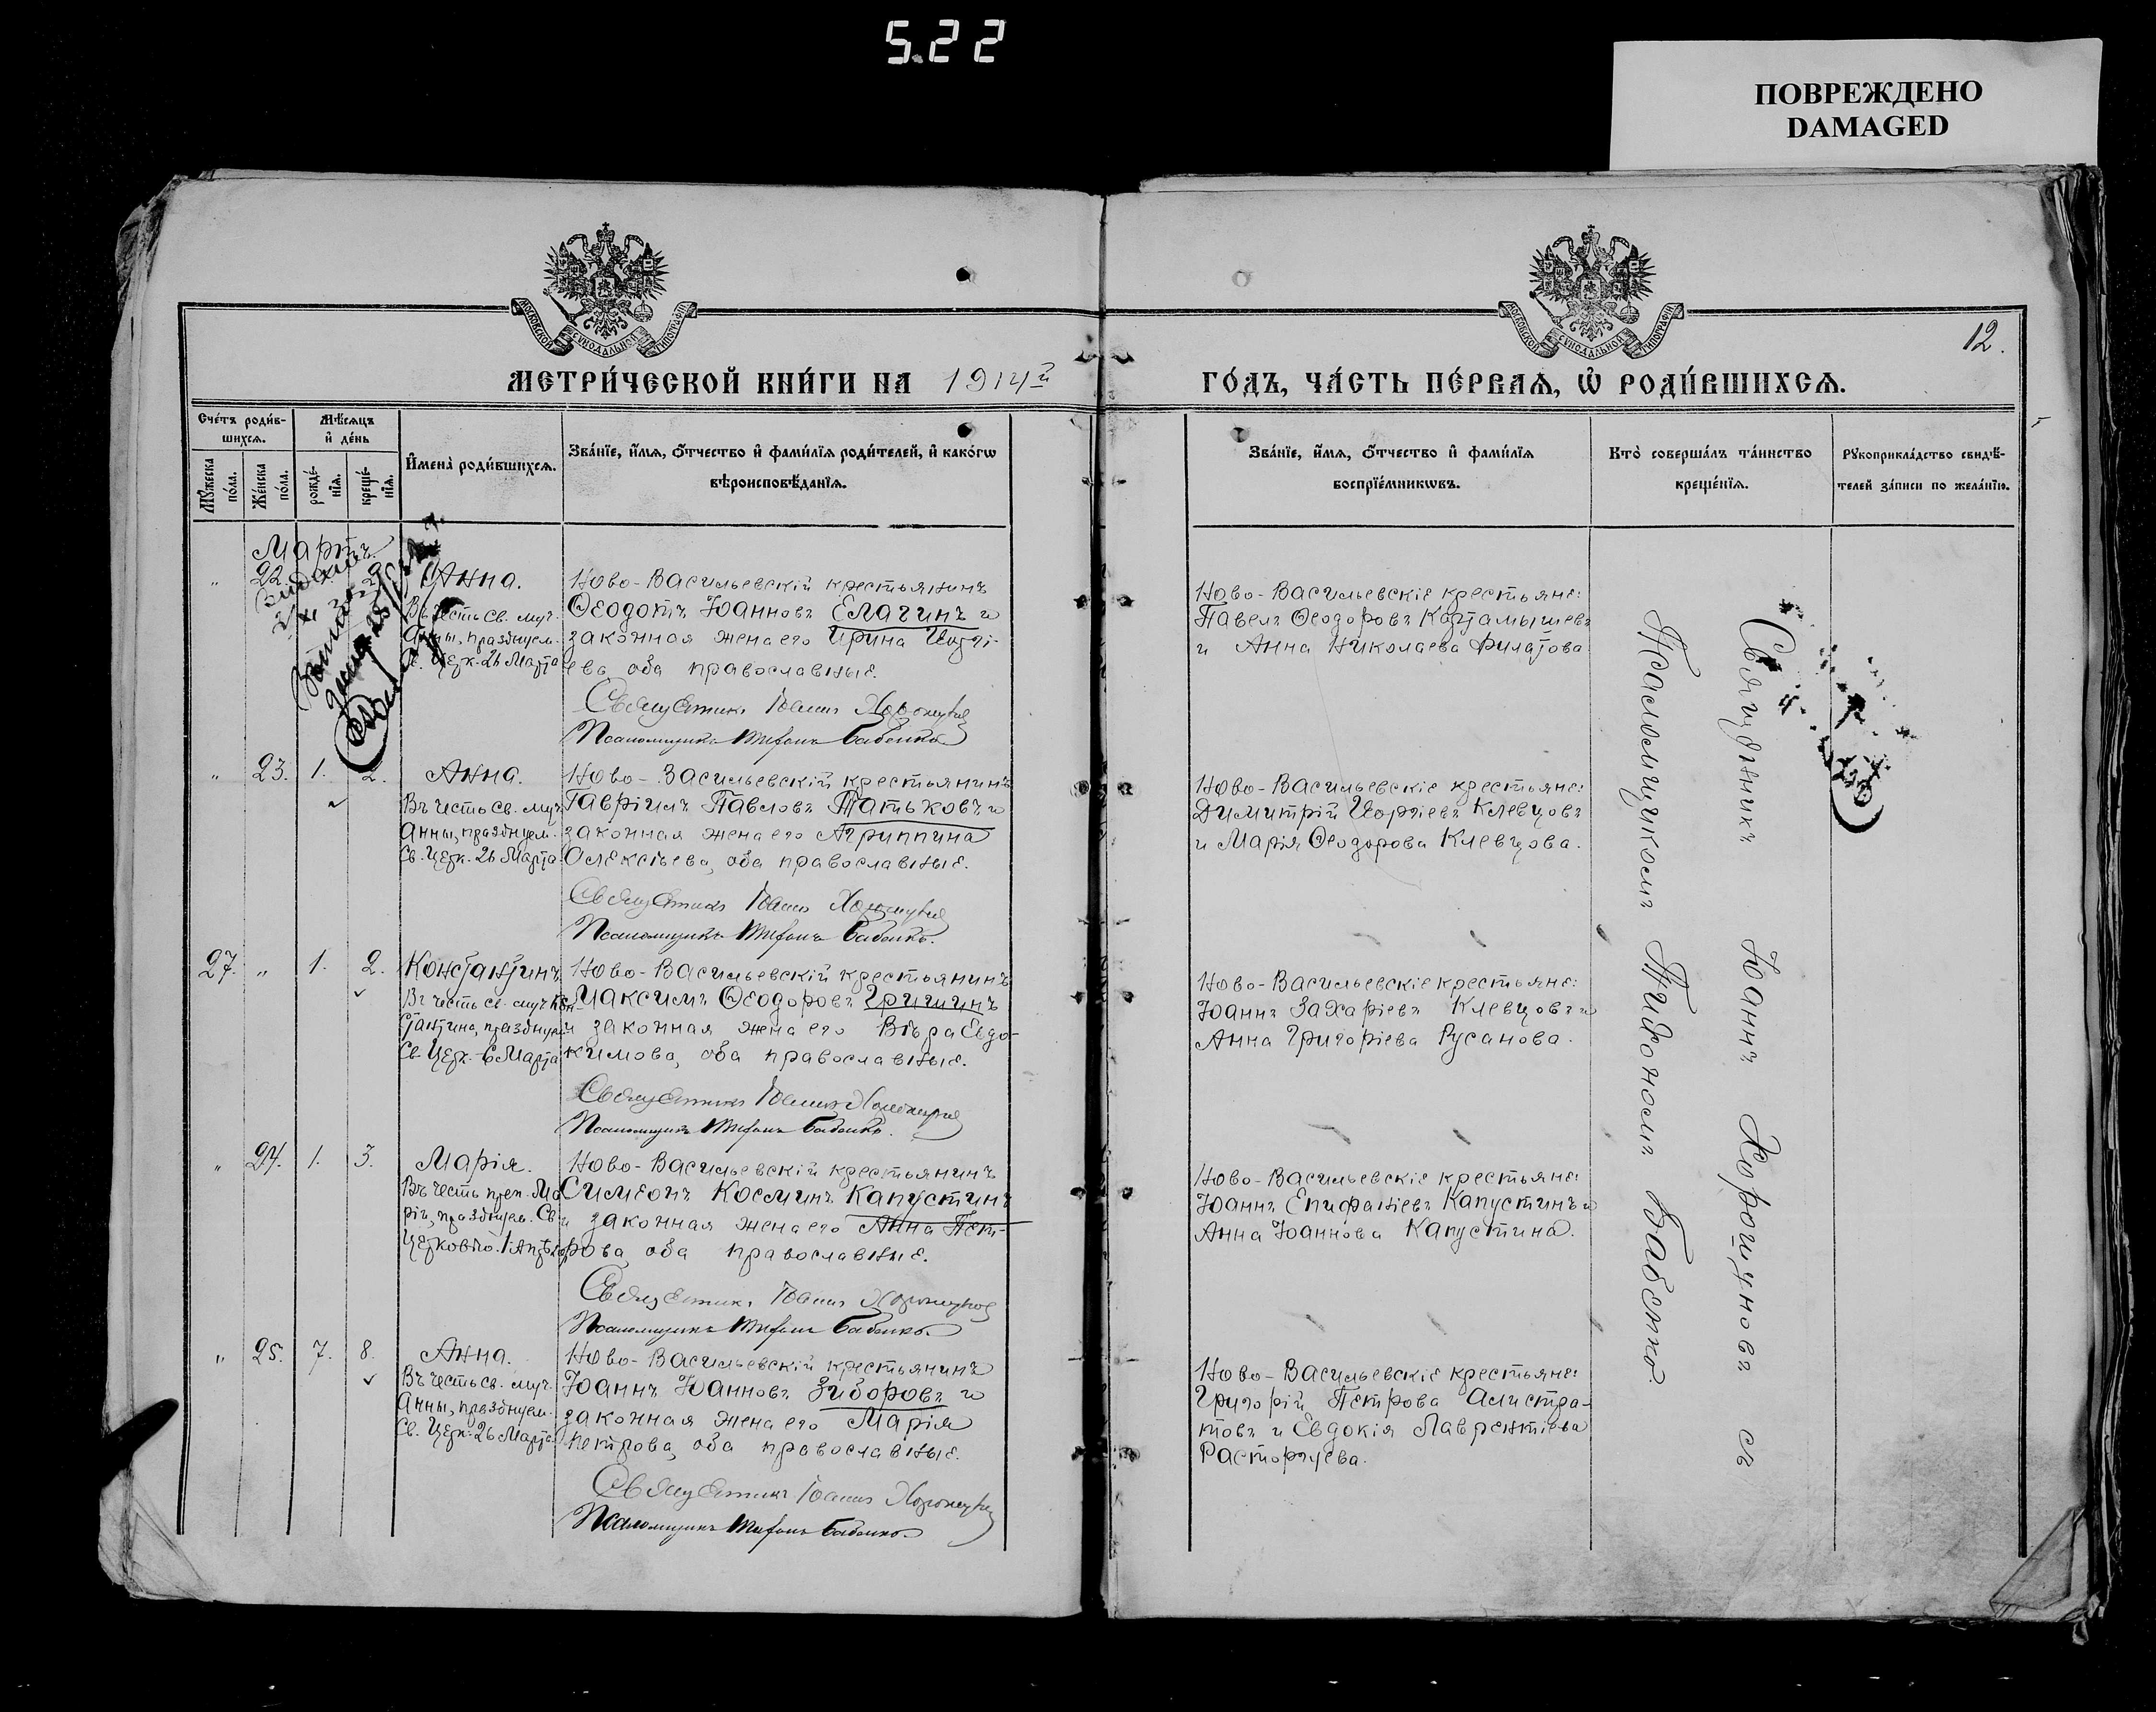 5.22
ПОВРЕЖДЕНО
DAMAGED
МОСКОВСКОЙ СѴНОДАЛЬНОЙ ТИПОГРАФІИ
МОСКОВСКОЙ СѴНОДАЛЬНОЙ ТИПОГРАФІИ
12.
МЕТРИ́ЧЕСКОЙ КНИ́ГИ НА 1914й
ГО́ДЪ, ЧА́СТЬ ПЕ́РВАѦ, Ѡ҆ РОДИ́ВШИХСѦ.
Сче́тъ роди́в-
шихсѧ.
Мѣ́сѧцъ
и҆ де́нь
Мꙋ́жеска
по́ла.
Же́нска
по́ла.
рожде́-
нїѧ.
креще́-
нїѧ.
И҆мена̀ роди́вшихсѧ.
Зва́нїе, и҆́мѧ, ѻ҆́тчество и҆ фами́лїѧ роди́телей, и҆ како́гѡ
вѣроисповѣ́данїѧ.
Зва́нїе, и҆́мѧ, ѻ҆́тчество и҆ фами́лїѧ
воспрїе́мникѡвъ.
Кто̀ соверша́лъ та́инство
креще́нїѧ.
Рꙋкоприкла́дство свидѣ́-
телей за́писи по жела́нїю.
Мартъ.
„ 22. 2.
Анна.
Въ честь св. муч.
Анны, празднуем.
Св. Церк. 26 Марта
Ново-Васильевскій крестьянинъ
Ѳеодотъ Іоанновъ Елагинъ и
законная жена его Ирина Игнті-
ева, оба православные.
Священникъ Іоаннъ Хорошуновъ
Псаломщикъ Тифонъ Бабенко
Ново-Васильевскіе крестьяне:
Павелъ Ѳеодоровъ Картамышевъ
и Анна Николаева Филатова
„ 23. 1. 2.
Анна.
Въ честь св. муч.
Анны, празднуем.
Св. Церк. 26 Марта
Ново-Васильевскій крестьянинъ
Гавріилъ Павловъ Татьковъ и
законная жена его Агриппина
Алексіева, оба православные.
Священникъ Іоаннъ Хорошуновъ
Псаломщикъ Тифонъ Бабенко.
Ново-Васильевскіе крестьяне:
Димитрій Георгіевъ Клевцовъ
и Марія Ѳеодорова Клевцова.
27. „ 1. 2.
Константинъ
Въ честь св. муч. Кон-
стантина, празднуем.
Св. Церк. 6 Марта
Ново-Васильевскій крестьянинъ
Максимъ Ѳеодоровъ Гришинъ
и законная жена его Вѣра Евдо-
кимова, оба православные.
Священникъ Іоаннъ Хорошуновъ
Псаломщикъ Тифонъ Бабенко.
Ново-Васильевскіе крестьяне:
Іоаннъ Захаріевъ Клевцовъ и
Анна Григоріева Русанова.
„ 24. 1. 3.
Марія.
Въ честь преп. Ма-
ріи, празднуем. Св.
Церковію 1 Апрѣля
Ново-Васильевскій крестьянинъ
Симеонъ Косминъ Капустинъ
и законная жена его Анна Пет-
рова, оба православные.
Священникъ Іоаннъ Хорошуновъ
Псаломщикъ Тифонъ Бабенко.
Ново-Васильевскіе крестьяне:
Іоаннъ Епифаніевъ Капустинъ и
Анна Іоаннова Капустина.
„ 25. 7. 8.
Анна.
Въ честь св. муч.
Анны, празднуем.
Св. Церк. 26 Марта
Ново-Васильевскій крестьянинъ
Іоаннъ Іоанновъ Зиборовъ и
законная жена его Марія
Петрова, оба православные.
Священникъ Іоаннъ Хорошуновъ
Псаломщикъ Тифонъ Бабенко.
Ново-Васильевскіе крестьяне:
Григорій Петрова Алистра-
товъ и Евдокія Лаврентіева
Расторгуева.
Священникъ Іоаннъ Хорошуновъ съ
Псаломщикомъ Тифономъ Бабенко.